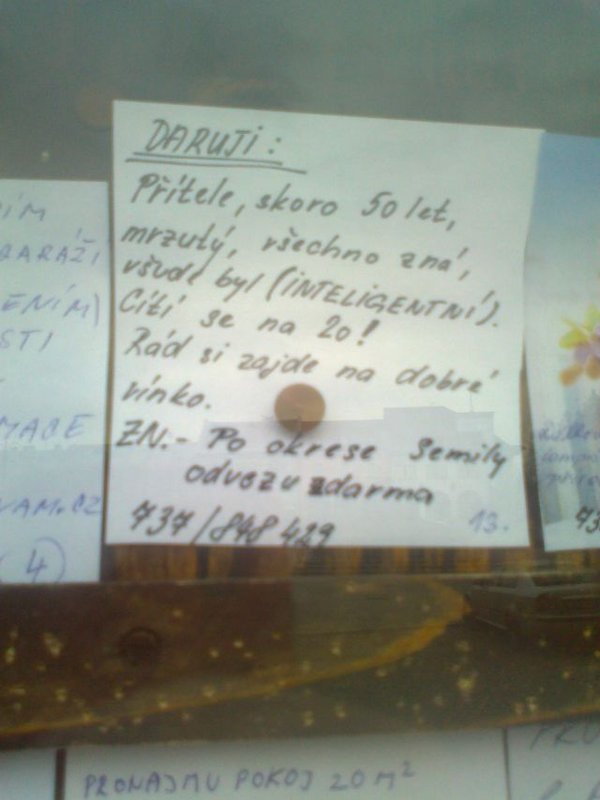 DARUJI:
Přítele, skoro 50 let,
mrzutý, všechno zná,
všude byl (INTELIGENTNÍ).
Cítí se na 20!
Rád si zajde na dobré
vínko.
ZN.- Po okrese Semily
odvezu zdarma
737/848 429
13.
ÍM
GARÁŽÍ
ENÍM)
STI
MACE
VAM.CZ
(4)
PRONAJMU POKOJ 20 M²